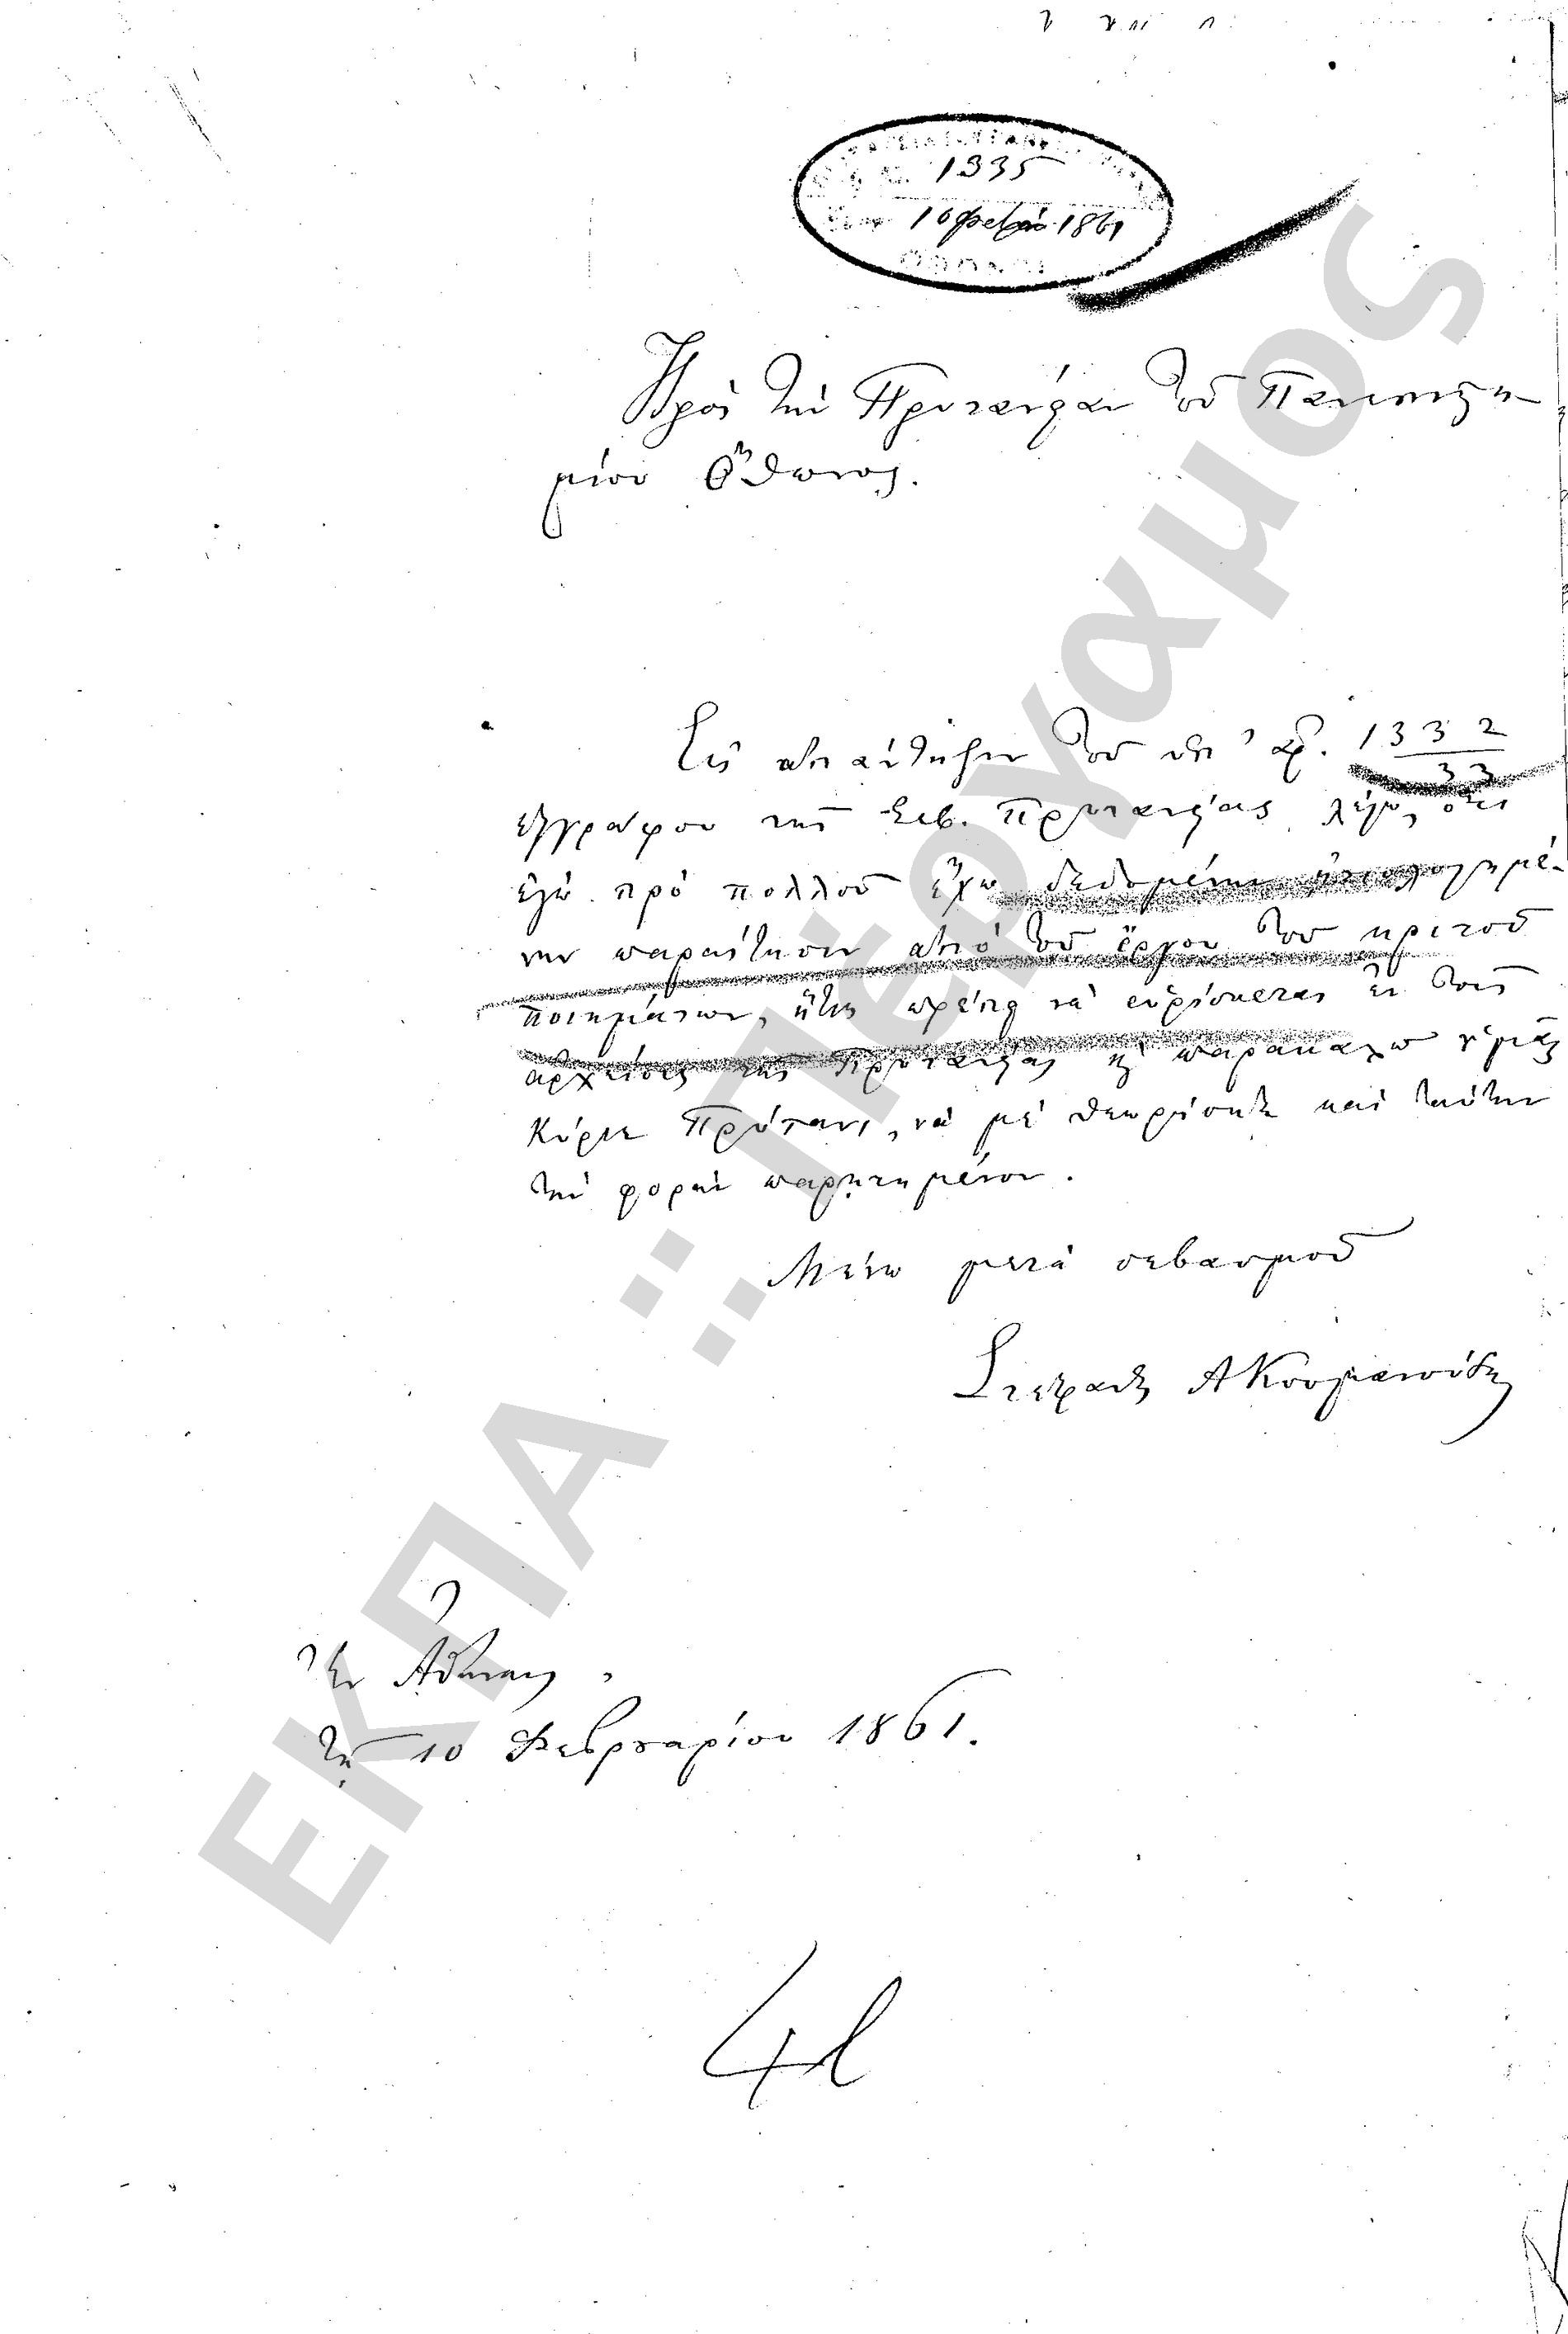 1335
10 Φεβρ. 1861
Πρὸς τὴν Πρυτανείαν τοῦ Πανεπιστη-
μίου Ὄθωνος.
Εἰς ἀπάντησιν τοῦ ὑπ' ἀρ. 1332
33
ἐγγράφου τῆς Σεβ. Πρυτανείας λέγω, ὅτι
ἐγὼ πρὸ πολλοῦ ἔχω δεδομένην ᾐτιολογημέ-
νην παραίτησιν ἀπὸ τοῦ ἔργου τοῦ κριτοῦ
ποιημάτων, ἥτις πρέπει νὰ εὑρίσκεται ἐν τοῖς
ἀρχείοις τῆς Πρυτανείας καὶ παρακαλῶ ὑμᾶς
Κύριε Πρύτανι, νὰ μὲ θεωρήσητε καὶ ταύτην
τὴν φορὰν παρῃτημένον.
Μένω μετὰ σεβασμοῦ
Στέφανος Α Κουμανούδης
Ἐν Ἀθήναις,
τῇ 10 Φεβρουαρίου 1861.
ΕΚΠΑ :: Πέργαμος